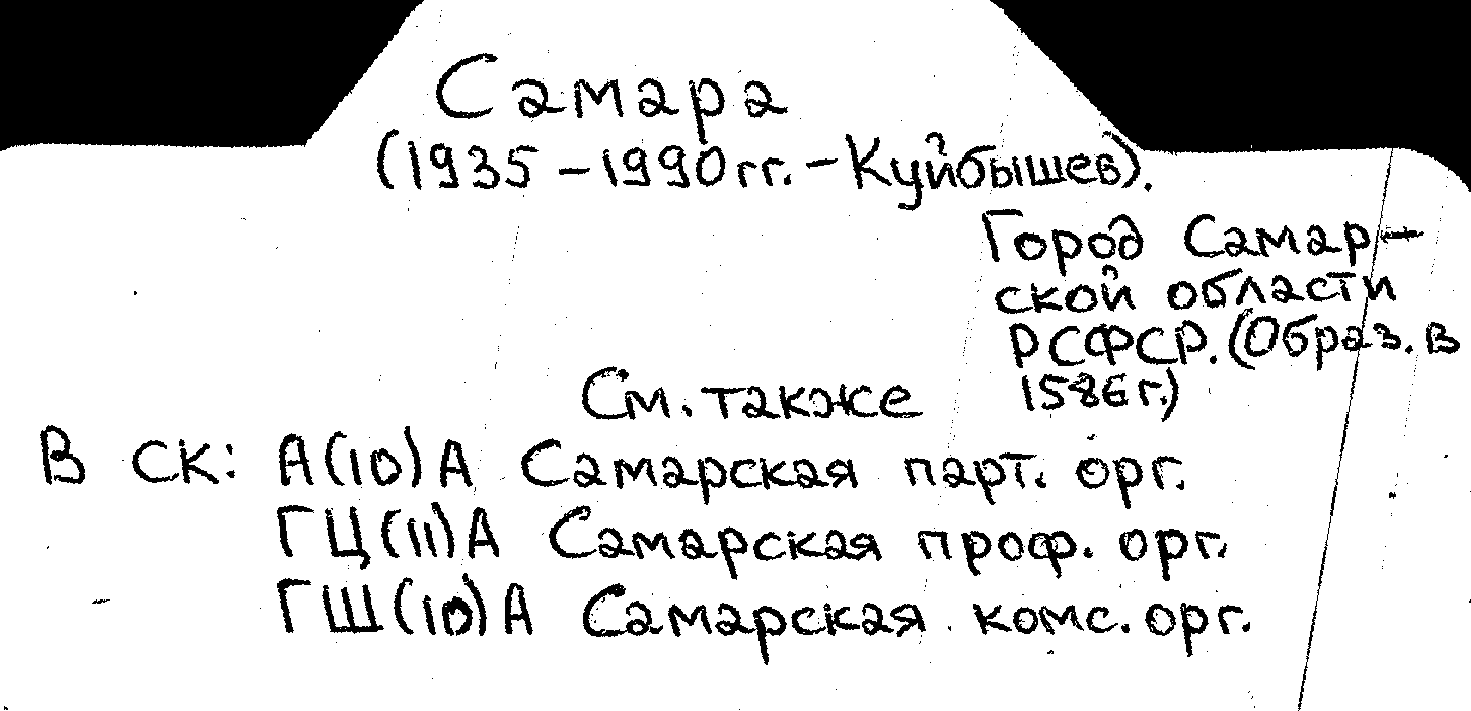 Самара
(1935-1990 гг. - Куйбышев).
Город Самар-
ской области
РСФСР. (Образ. в
1586 г.)
См. также
В СК: А(10)А Самарская парт. орг.
ГЦ(11)А Самарская проф. орг.
ГШ(10)А Самарская комс. орг.